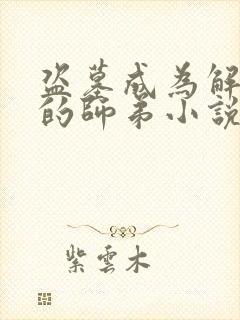 盗墓成為解
的師弟小說
紫雲木